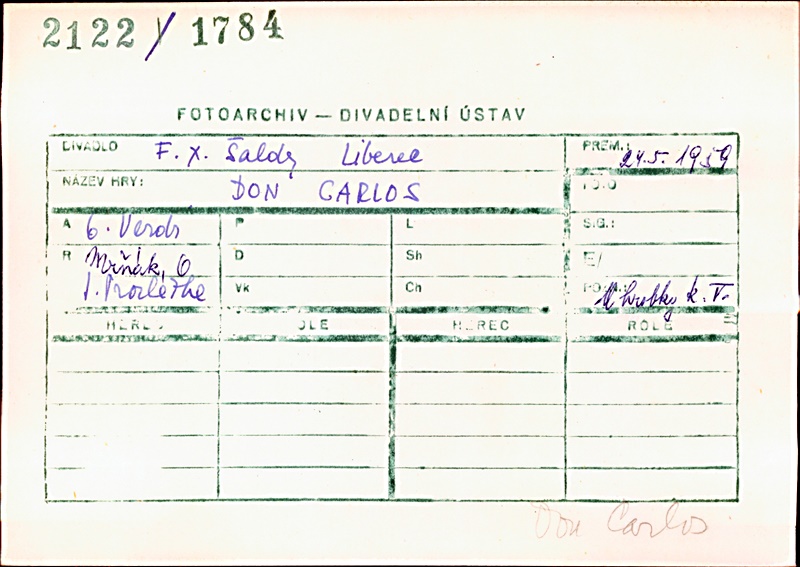 2122 / 1784
FOTOARCHIV — DIVADELNÍ ÚSTAV
DIVADLO F. X. Šaldy Liberec PREM.: 24.5. 1959
NÁZEV HRY: DON CARLOS FOTO
A G. Verdi P L SG.:
R Mrňák, O D Sh E/
J. Vk Ch POZN.: k. V.
HEREC ROLE HEREC ROLE
Don Carlos